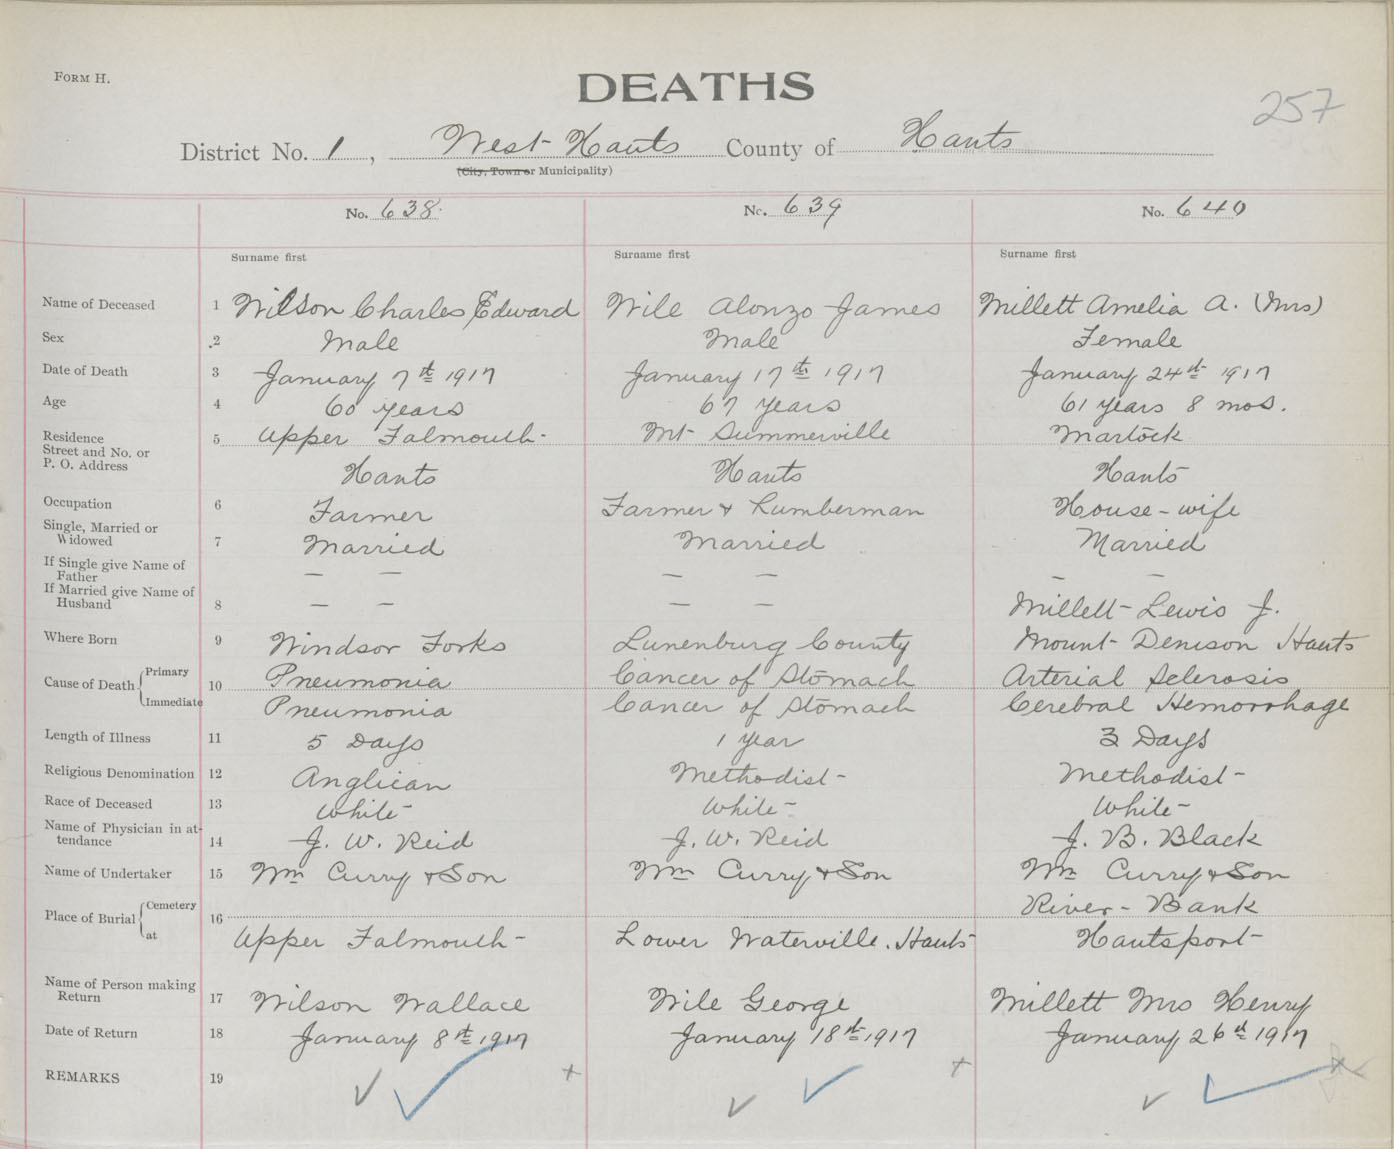 FORM H.
DEATHS
257
District No. 1, West Hants County of Hants
(City, Town or Municipality)
No. 638. No. 639 No. 640
Surname first Surname first Surname first
Name of Deceased 1 Wilson Charles Edward Wile Alonzo James Millett Amelia A. (Mrs)
Sex 2 Male Male Female
Date of Death 3 January 7th 1917 January 17th 1917 January 24th 1917
Age 4 60 years 67 years 61 years 8 mos.
Residence 5 Upper Falmouth Mt Summerville Martock
Street and No. or
P. O. Address Hants Hants Hants
Occupation 6 Farmer Farmer & Lumberman House-wife
Single, Married or
Widowed 7 Married Married Married
If Single give Name of
Father — — — — — —
If Married give Name of
Husband 8 — — — — Millett Lewis J.
Where Born 9 Windsor Forks Lunenburg County Mount Denison Hants
Cause of Death Primary 10 Pneumonia Cancer of Stomach Arterial Sclerosis
Immediate Pneumonia Cancer of Stomach Cerebral Hemorrhage
Length of Illness 11 5 Days 1 year 3 Days
Religious Denomination 12 Anglican Methodist Methodist
Race of Deceased 13 White White White
Name of Physician in at-
tendance 14 J. W. Reid J. W. Reid J. B. Black
Name of Undertaker 15 Wm Curry & Son Wm Curry & Son Wm Curry & Son
Place of Burial Cemetery 16 River-Bank
at Upper Falmouth Lower Waterville. Hants Hantsport
Name of Person making
Return 17 Wilson Wallace Wile George Millett Mrs Henry
Date of Return 18 January 8th 1917 January 18th 1917 January 26th 1917
REMARKS 19